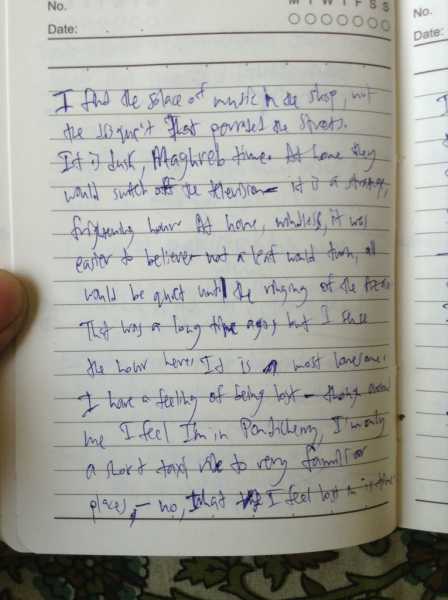 No.
M T W T F S S
Date:
No.
Date:
I find the solace of music in the shop, not
the disquiet that pervaded the streets.
It is dusk, Maghreb time. At home they
would switch off the television – it is a strange,
frightening hour. At home, windless, it was
easier to believe not a leaf would turn, all
would be quiet until the ringing of the
That was a long time ago, but I sense
the hour here. It is most lonesome.
I have a feeling of being lost – though around
me I feel I'm in Pondicherry, I'm only
a short taxi ride to very familiar
places, – no, that I feel lost in time